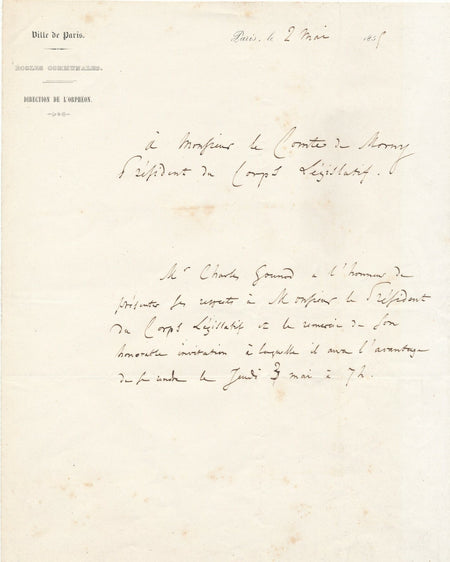 Ville de Paris.
ÉCOLES COMMUNALES.
DIRECTION DE L'ORPHÉON.
Paris, le 2 Mai 1855
à Monsieur le Comte de Morny
Président du Corps Législatif.
Mr Charles Gounod a l'honneur de
présenter ses respects à Monsieur le Président
du Corps Législatif et le remercie de son
honorable invitation à laquelle il aura l'avantage
de se rendre le Jeudi 3 mai à 7h.